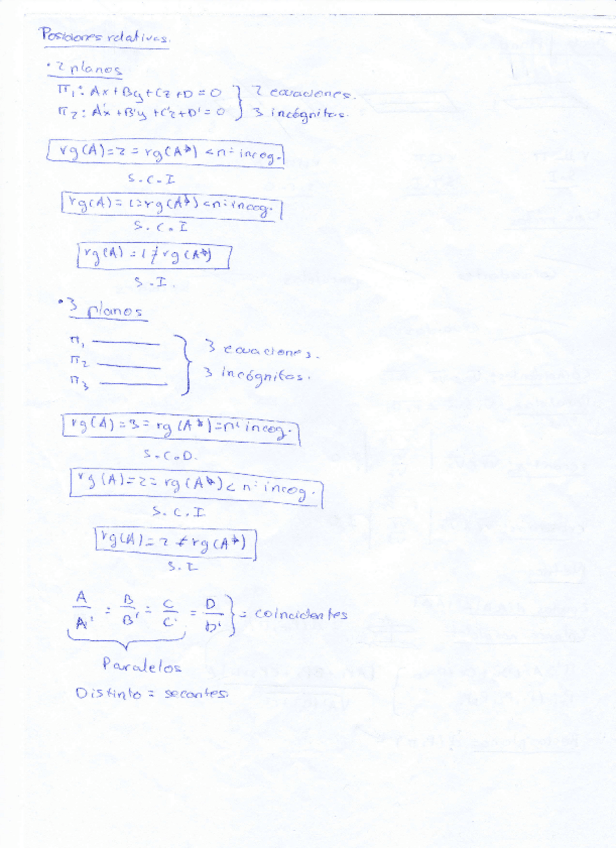 Posiciones relativas.
· 2 planos
π₁: Ax+By+Cz+D=0 } 2 ecuaciones.
π₂: A'x+B'y+C'z+D'=0 } 3 incógnitas.
rg(A)=2=rg(A*)<nº incog.
S.C.I
rg(A)=1=rg(A*)<nº incog.
S.C.I
rg(A)=1≠rg(A*)
S.I.
· 3 planos
π₁ } 3 ecuaciones.
π₂ } 3 incógnitas.
π₃
rg(A)=3=rg(A*)=nº incog.
S.C.D.
rg(A)=2=rg(A*)<nº incog.
S.C.I
rg(A)=2≠rg(A*)
S.I
A/A' = B/B' = C/C' = D/D' } = coincidentes
Paralelos
Distinto = secantes.